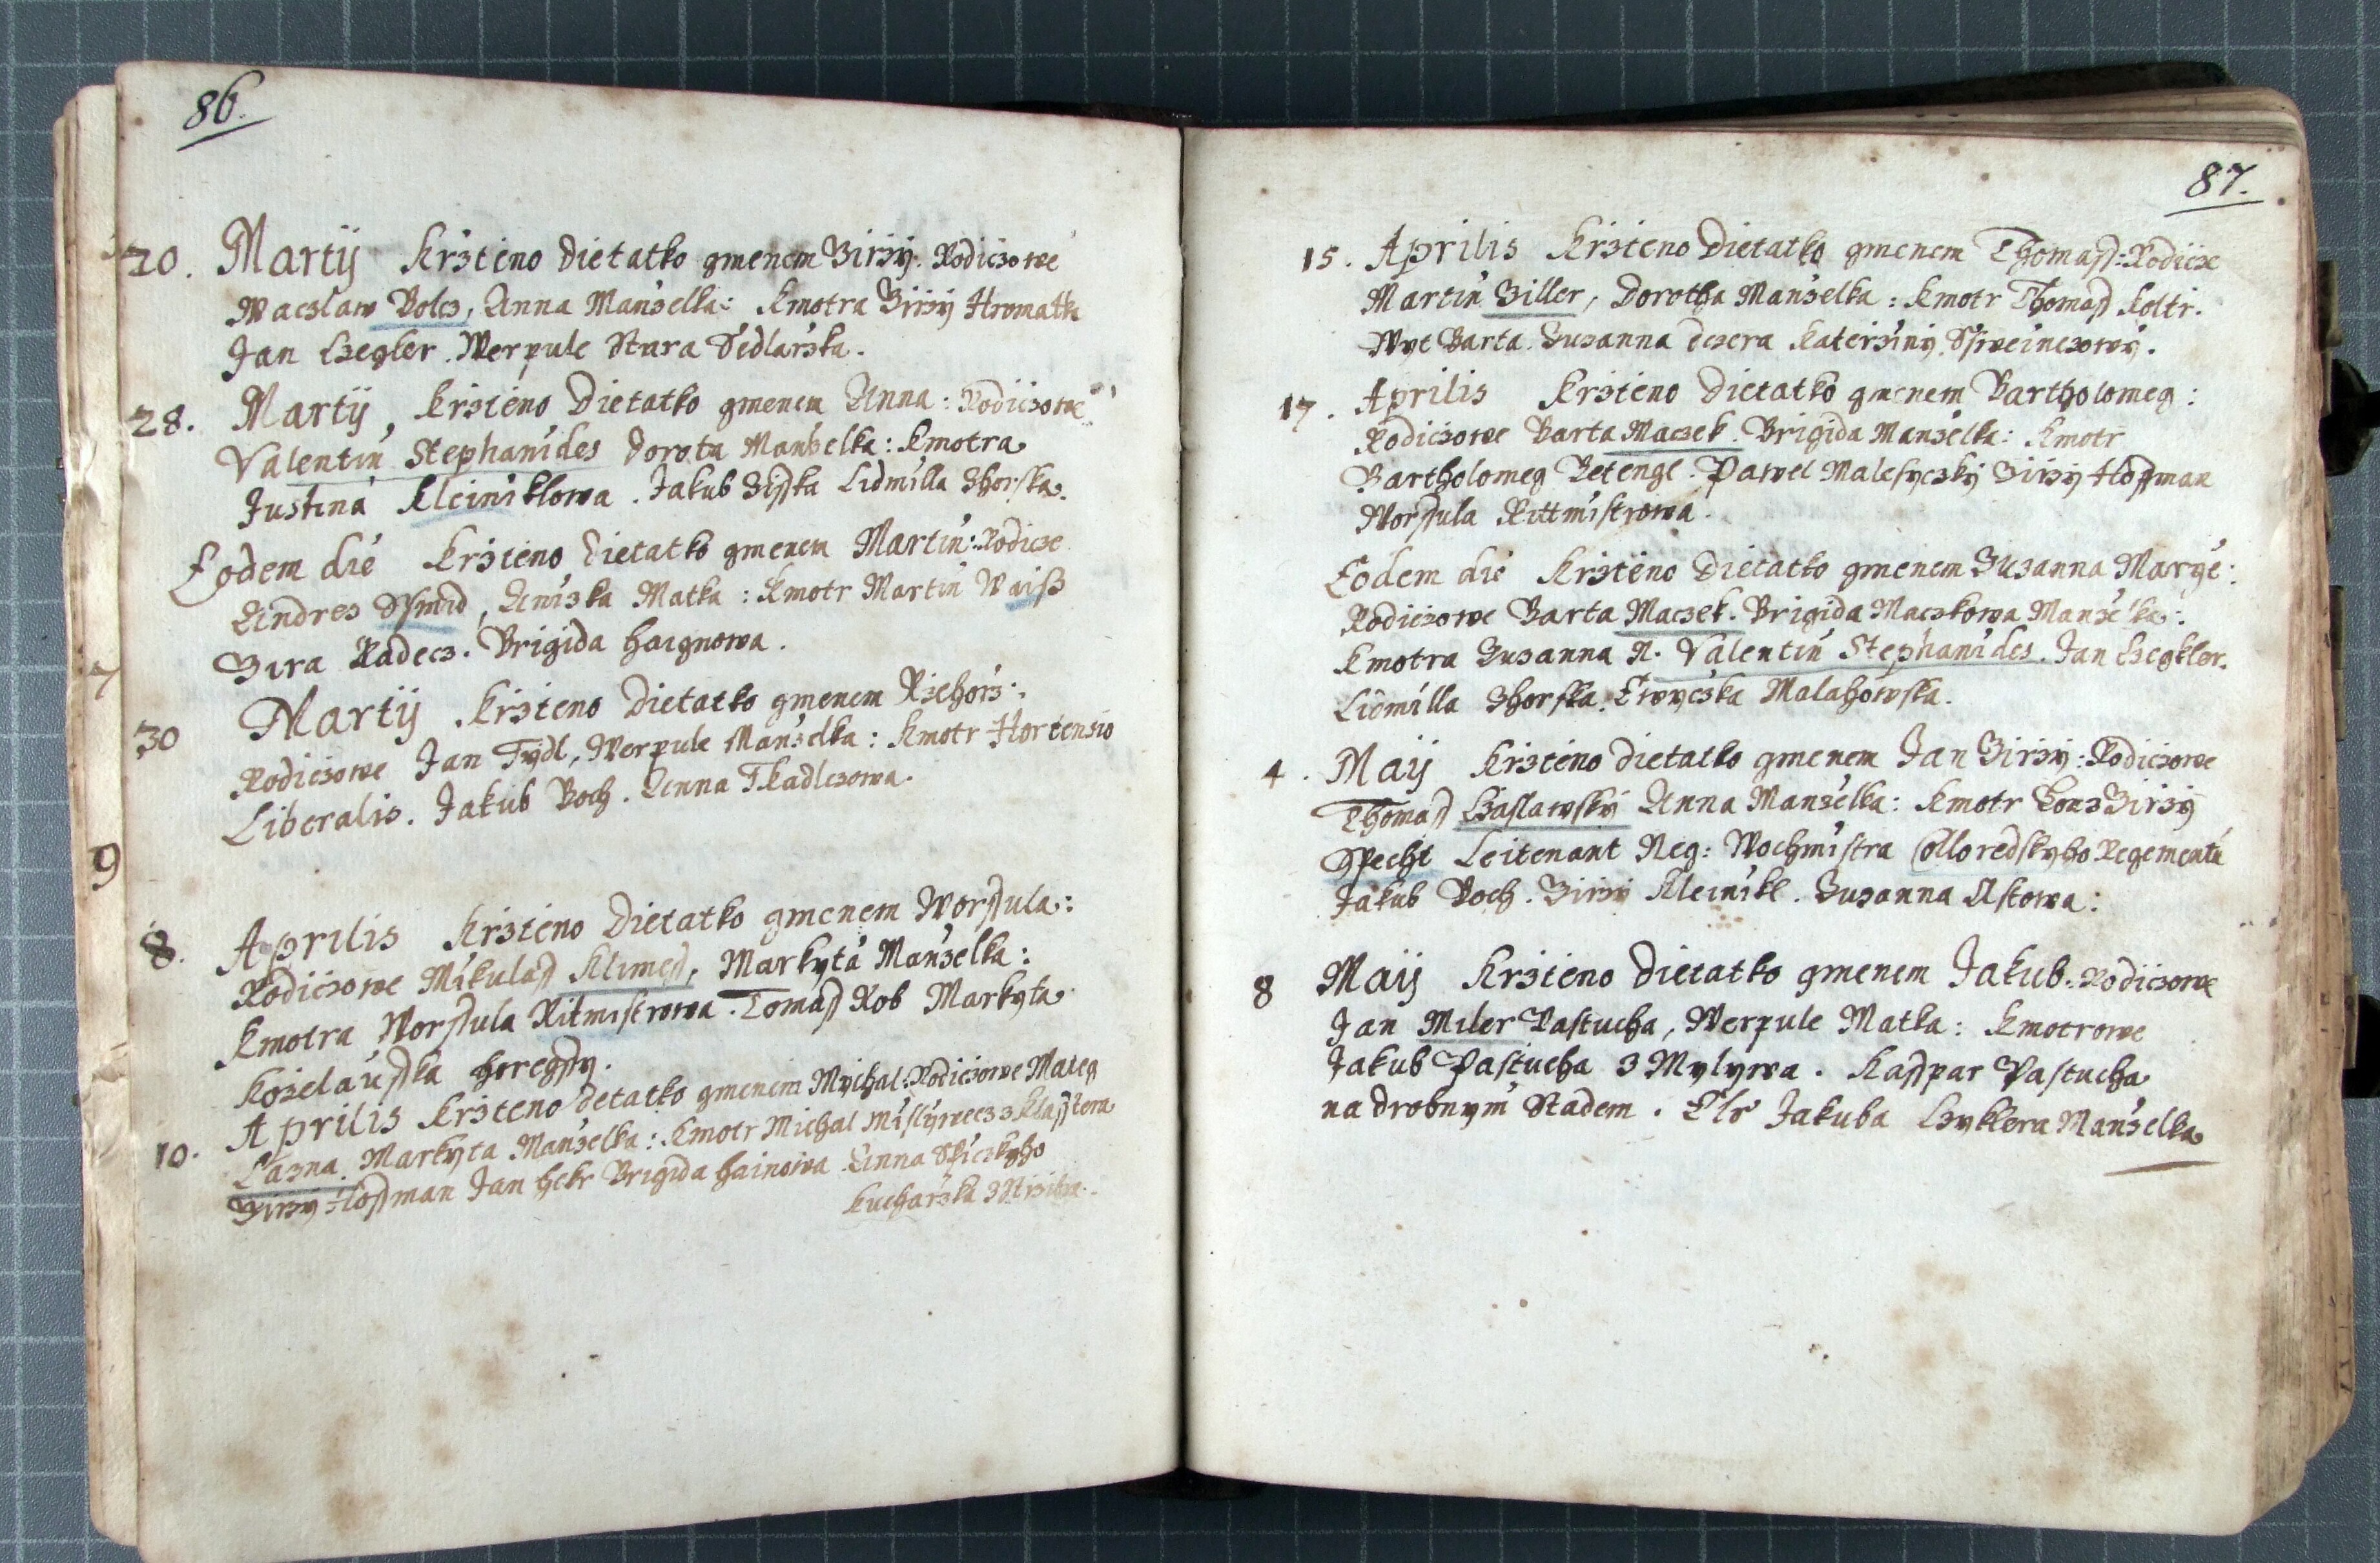 86.
20. Martij Krzteno Dietatko gmenem Girzy. Rodiczowe
Waczlaw Bolcz, Anna Manzelka: Kmotra Girzy Hromatka
Jan Czegler. Werpule Stara Sedlarzka.
28. Martij, Krzteno Dietatko gmenem Anna: Rodiczowe
Valentin Stephanides Dorota Manzelka: Kmotra
Justina Kleiniklowa. Jakub Zisska Lidmilla Zhorska.
Eodem die Krzteno Dietatko gmenem Martin: Rodicze
Andres Ssmid, Anizka Matka: Kmotr Martin Waiß
Gira Radecz. Brigida haignowa.
30 Martij Krzteno Dietatko gmenem Rzehorz:
Rodiczowe Jan Tydl, Werpule Manzelka: Kmotr Hortensio
Liberalis. Jakub Boch. Anna Tkadlczowa.
8. Aprilis Krzteno Dietatko gmenem Worssula:
Rodiczowe Mikulass Klimess, Markyta Manzelka:
Kmotra Worssula Ritmistrowa. Tomass Rob Markyta
Kozelausska horegssy.
10. Aprilis Krzteno detatko gmenem Mychal: Rodiczowe Mateg
Lazna. Markyta Manzelka: Kmotr Michal Mislywecz z Klasstera
Girzy Hossman Jan hekr Brigida hainowa. Anna
Kucharzka
7
9
87.
15. Aprilis Krzteno Dietatko gmenem Thomass: Rodicze
Martin Ziller, Dorotha Manzelka: Kmotr Thomass Koltr.
Wyt Barta. Zuzanna dczera Katerziny
17. Aprilis Krzteno Dietatko gmenem Bartholomeg:
Rodiczowe Barta Maczek. Brigida Manzelka: Kmotr
Bartholomeg Betengl. Pawel Malesyczky Girzy Hossman
Worssula Rittmistrowa.
Eodem die Krzteno Dietatko gmenem Zuzanna Marye:
Rodiczowe Barta Maczek. Brigida Maczkowa Manzelka:
Kmotra Zuzanna N. Valentin Stephanides. Jan Czegkler.
Lidmilla Zhorska. Ewyczka Malahowska.
4. Maij Krzteno dietatko gmenem Jan Girzy: Rodiczowe
Thomass Czaslawsky Anna Manzelka: Kmotr Honz Girzy
Specht Leitenant Neg: Wochmistra Colloredskyho Regementu
Jakub Boch. Girzy Kleinikl. Zuzanna Astowa:
8 Maij Krzteno Dietatko gmenem Jakub: Rodiczowe
Jan Miler Pastucha, Werpule Matka: Kmotrowe
Jakub Pastucha z Mylywa. Kasspar Pastucha
na drobnym Stadem. Jakuba Czyklera Manzelka